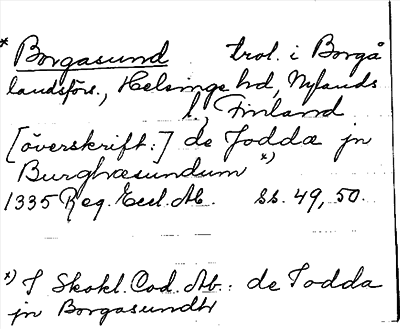 * Borgasund trol. i Borgå
landsförs., Helsinge hd, Nylands
l, Finland
[överskrift:] de Todda jn
Burghæsundum *)
1335 Reg. Eccl. Ab. ss. 49, 50.
*) I Skokl. Cod. Ab.: de Todda
jn Borgasundh